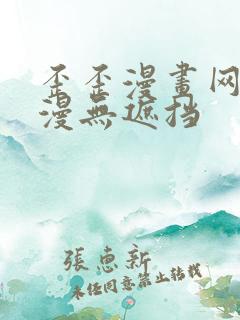 歪歪漫畫网
漫無遮挡
張惠新
未经同意禁止转载